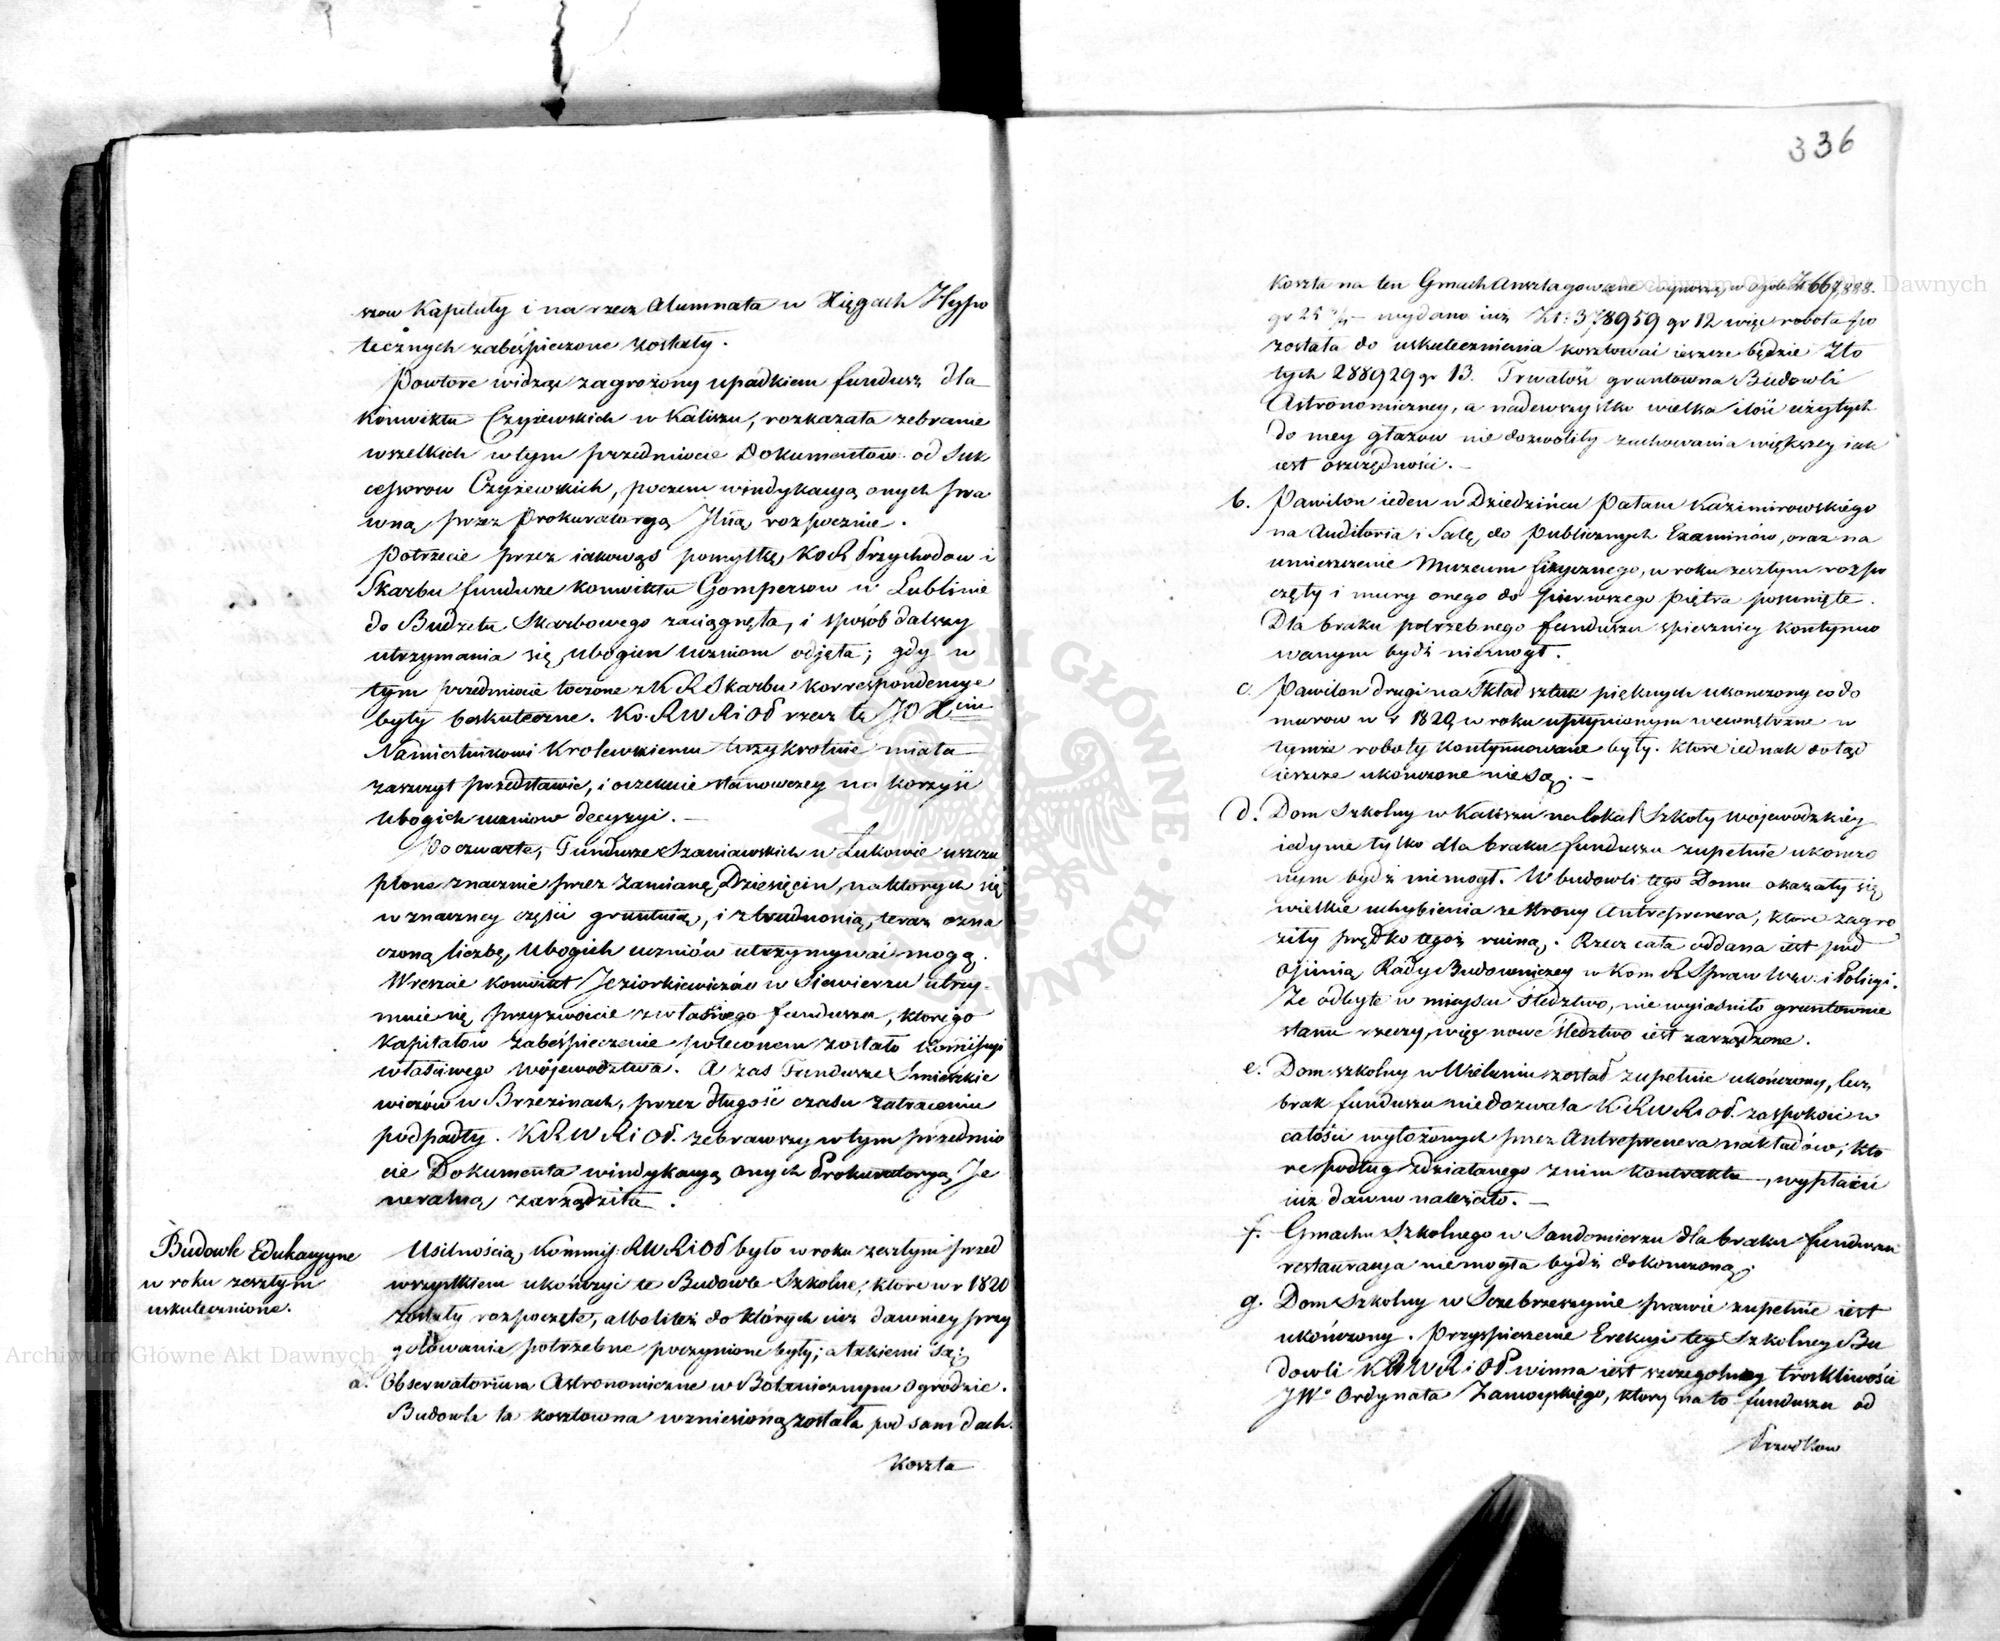 szow Kapituły i na rzecz Alumnata w Xięgach Hypo
tecznych zabeśpieczone zostały.
Powtore widząc zagrożony upadkiem fundusz dla
Konwiktu Czyżewskich w Kaliszu, rozkazała zebranie
wszelkich w tym przedmiocie Dokumentow od Suk
cessorow Czyżewskich, poczem windykacyą onych pra
wną przez Prokuratoryą Jlną rozpocznie.
Potrzecie przez iakowąś pomyłkę, KoR Przychodow i
Skarbu fundusze konwiktu Gompersow w Lublinie
do Budżetu Skarbowego zaciągnęła, i sposób dalszy
utrzymania się ubogim uczniom odjęła; gdy w
tym przedmiocie toczone z KRSkarbu korrespondencye
były bezkuteczne. Ko.RWRiOś rzecz tę JO Xciu
Namiestnikowi Krolewskiemu trzykrotnie miała
zaszczyt przedstawić, i oczekuie stanowczey na korzyść
ubogich uczniow decyzyi. —
Poczwarte, Fundusze Szaniawskich w Łukowie uszczu
plone znacznie przez zamianę Dziesięcin, na ktorych się
w znaczney części gruntuią, i z trudnością, teraz ozna
czoną liczbę ubogich uczniów utrzymywać mogą.
Wreszcie konwikt Jeziorkiewiczów w Siewierzu utrzy
muie się przyzwoicie z własnego funduszu, ktorego
kapitałów zabeśpieczenie poleconem zostało Kommissyi
właściwego wojewodztwa. A zaś Fundusze Smieszkie
wiczów w Brzezinach, przez długość czasu zatraceniu
podpadły. KRWRiOś. zebrawszy w tym przedmio
cie Dokumenta windykacyą onych Prokuratoryą Je
neralną zarządziła.
Budowle Edukacyyne
w roku zeszłym
uskutecznione.
Usilnością Kommis: RWRiOś było w roku zeszłym przed
wszystkiem ukończyć te Budowle Szkolne, ktore w r 1820
zostały rozpoczęte, albo liteż do których iuż dawniey przy
gotowanie potrzebne poczynione były; a takiemi są:
a. Obserwatorium Astronomiczne w Botanicznym Ogrodzie.
Budowla ta kosztowna wzniesioną została pod sam dach.
Koszta
336
Koszta na ten Gmach Anszlagowane wynoszą w ogóle Zł 667,888.
gr 25 wydano iuż Zł: 378959 gr 12 więc robota po
została do uskutecznienia kosztować ieszcze będzie Zło
tych 288929 gr 13. Trwałość gruntowna Budowli
Astronomiczney, a nadewszystko wielka ilość użytych
do niey głazow nie dozwoliły zachowania większey iak
iest oszczędności. —
b. Pawilon ieden w Dziedzińcu Pałacu Kazimirowskiego
na Auditoria i Salę do Publicznych Examinów, oraz na
umieszczenie Muzeum fizycznego, w roku zeszłym rozpo
częty i mury onego do pierwszego piętra posunięte.
Dla braku potrzebnego funduszu spieszniey kontynuo
wanym bydź niemogł.
c. Pawilon drugi na Skład sztuk pięknych ukonczony co do
murow w r 1820, w roku upłynionym wewnętrzne w
tymże roboty kontynuowane były. ktore iednak dotąd
ieszcze ukonczone nie są. —
d. Dom Szkolny w Kaliszu na lokal Szkoły wojewodzkiéy
iedynie tylko dla braku funduszu zupełnie ukonczo
nym bydź niemogł. W budowli tego Domu okazały się
wielkie uchybienia ze strony Antreprenera, ktore zagro
ziły prędko tegoż ruiną. Rzecz cała oddana iest pod
Opinią Rady Budowniczey w Kom R Spraw Wew. i Policyi.
Że odbyte w mieyscu śledztwo, nie wyiaśniło gruntownie
stanu rzeczy, więc nowe śledztwo iest zarządzone.
e. Dom szkolny w Wieluniu został zupełnie ukończony, lecz
brak funduszu niedozwala KRWRiOś. zaspokoić w
całości wyłożonych przez Antreprenera nakładów, kto
re podług zdziałanego z nim kontraktu, wypłacić
iuż dawno należało. —
f. Gmachu Szkolnego w Sandomierzu dla braku funduszu
restauracya niemogła bydź dokonczoną.
g. Dom Szkolny w Szczebrzeszynie prawie zupełnie iest
ukończony. Przyspieszenie Erekcyi tey Szkolney Bu
dowli KRWRiOś winna iest szczegolney troskliwości
JWo Ordynata Zamoyskiego, ktory na to funduszu od
Przodkow